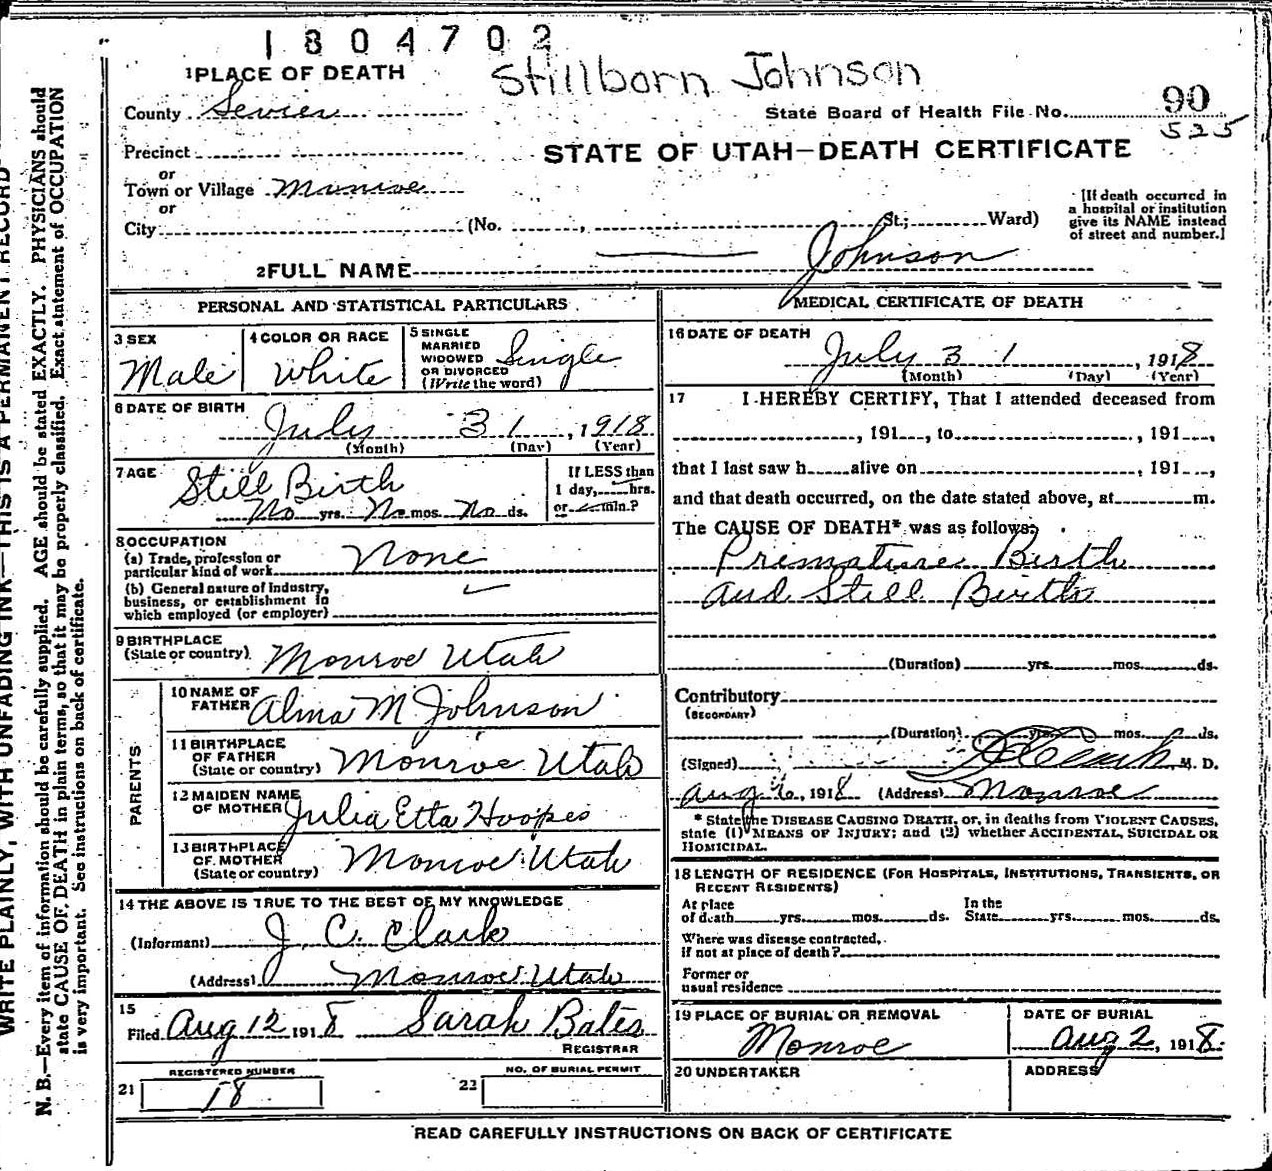 1804702
Stillborn Johnson
1 PLACE OF DEATH
County Sevier
State Board of Health File No. 90
525
Precinct
STATE OF UTAH—DEATH CERTIFICATE
or
Town or Village Monroe
or
City (No. , St.; Ward)
[If death occurred in
a hospital or institution
give its NAME instead
of street and number.]
2 FULL NAME Johnson
PERSONAL AND STATISTICAL PARTICULARS
3 SEX
Male
4 COLOR OR RACE
White
5 SINGLE
MARRIED
WIDOWED
OR DIVORCED
(Write the word)
Single
6 DATE OF BIRTH
July 31, 1918
(Month) (Day) (Year)
7 AGE
Still Birth
No yrs. No mos. No ds.
If LESS than
1 day, hrs.
or min.?
8 OCCUPATION
(a) Trade, profession or
particular kind of work None
(b) General nature of Industry,
business, or establishment in
which employed (or employer)
9 BIRTHPLACE
(State or country) Monroe Utah
PARENTS
10 NAME OF
FATHER Alma M Johnson
11 BIRTHPLACE
OF FATHER
(State or country) Monroe Utah
12 MAIDEN NAME
OF MOTHER Julia Etta Hoopes
13 BIRTHPLACE
OF MOTHER
(State or country) Monroe Utah
14 THE ABOVE IS TRUE TO THE BEST OF MY KNOWLEDGE
(Informant) J. C. Clark
(Address) Monroe Utah
15
Filed Aug 12 1918 Sarah Bates
REGISTRAR
REGISTERED NUMBER
21 18
NO. OF BURIAL PERMIT
22
MEDICAL CERTIFICATE OF DEATH
16 DATE OF DEATH
July 31, 1918
(Month) (Day) (Year)
17 I HEREBY CERTIFY, That I attended deceased from
, 191 , to , 191 ,
that I last saw h alive on , 191 ,
and that death occurred, on the date stated above, at m.
The CAUSE OF DEATH* was as follows:
Premature Birth
and Still Birth
(Duration) yrs. mos. ds.
Contributory
(SECONDARY)
(Duration) yrs. mos. ds.
(Signed) M. D.
Aug 6, 1918 (Address) Monroe
* State the DISEASE CAUSING DEATH, or, in deaths from VIOLENT CAUSES,
state (1) MEANS OF INJURY; and (2) whether ACCIDENTAL, SUICIDAL OR
HOMICIDAL.
18 LENGTH OF RESIDENCE (FOR HOSPITALS, INSTITUTIONS, TRANSIENTS, OR
RECENT RESIDENTS)
At place In the
of death yrs. mos. ds. State yrs. mos. ds.
Where was disease contracted,
if not at place of death?
Former or
usual residence
19 PLACE OF BURIAL OR REMOVAL
Monroe
DATE OF BURIAL
Aug 2, 1918
20 UNDERTAKER
ADDRESS
READ CAREFULLY INSTRUCTIONS ON BACK OF CERTIFICATE
WRITE PLAINLY, WITH UNFADING INK—THIS IS A PERMANENT RECORD
N. B.—Every item of information should be carefully supplied. AGE should be stated EXACTLY. PHYSICIANS should
state CAUSE OF DEATH in plain terms, so that it may be properly classified. Exact statement of OCCUPATION
is very important. See instructions on back of certificate.